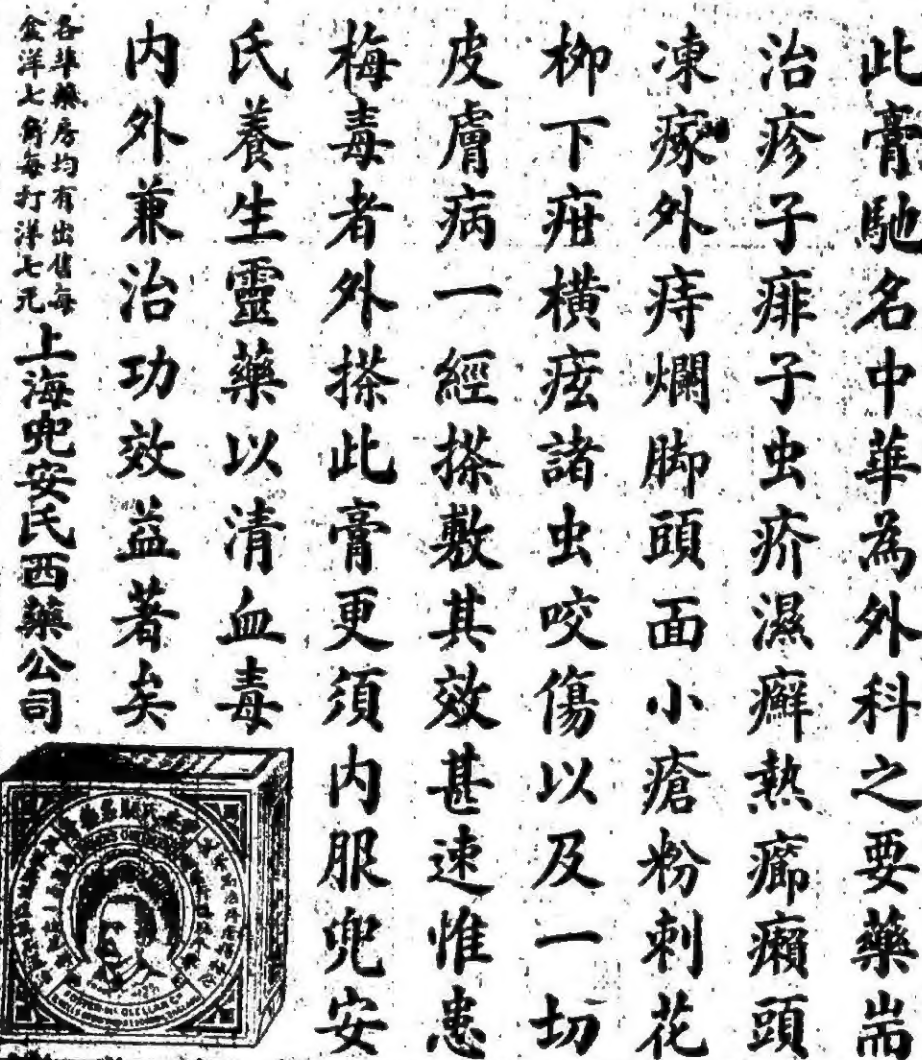 此膏馳名中華為外科之要藥耑
治疹子痱子虫疥濕癬熱癤癩頭
凍瘃外痔爛脚頭面小瘡粉刺花
柳下疳橫痃諸虫咬傷以及一切
皮膚病一經搽敷其效甚速惟患
梅毒者外搽此膏更須内服兜安
氏養生靈藥以清血毒
内外兼治功效益著矣
各華藥房均有出售每
盒洋七角每打洋七元
上海兜安氏西藥公司